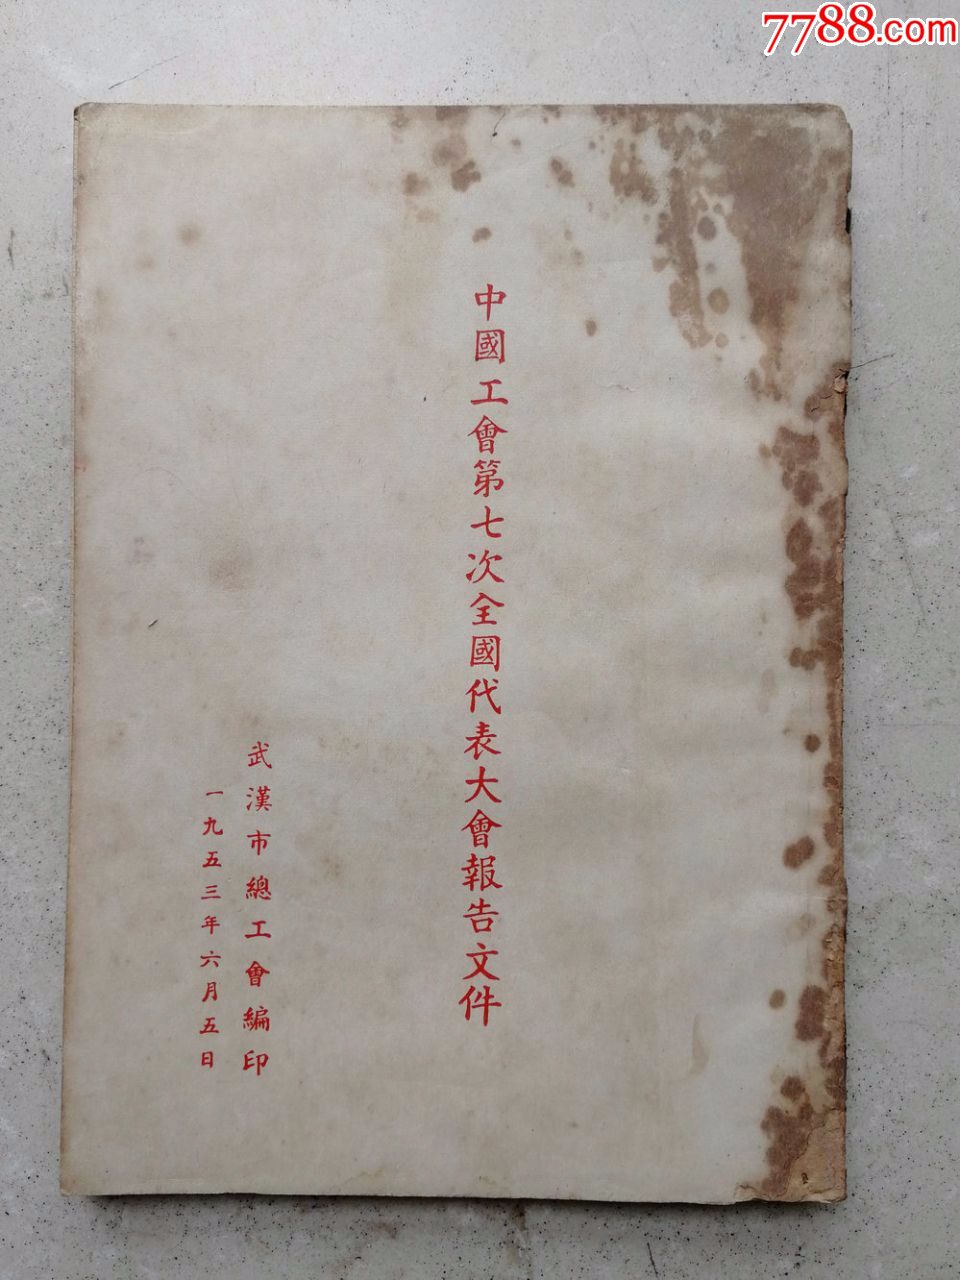 7788.com
中國工會第七次全國代表大會報告文件
武漢市總工會編印
一九五三年六月五日